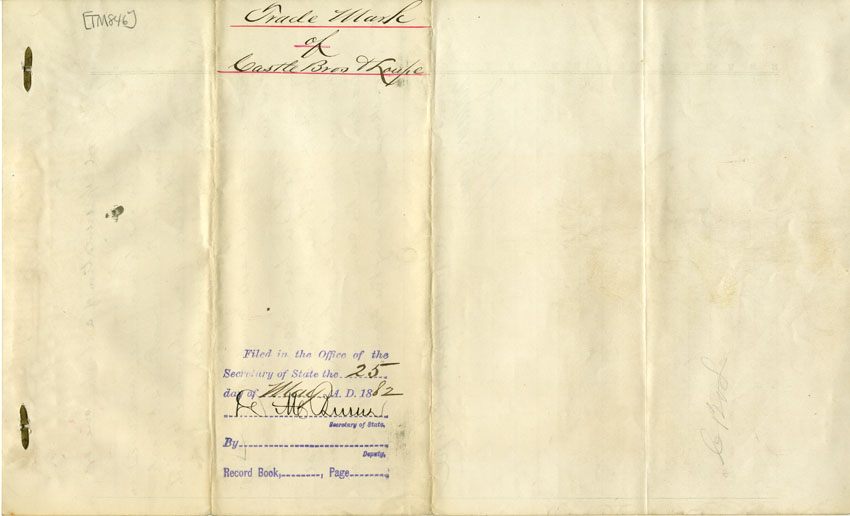 [TM846]
Trade Mark
of
Castle Bros & Loupe
Filed in the Office of the
Secretary of State the 25
day of May A. D. 1882
Secretary of State.
By
Deputy.
Record Book, , Page